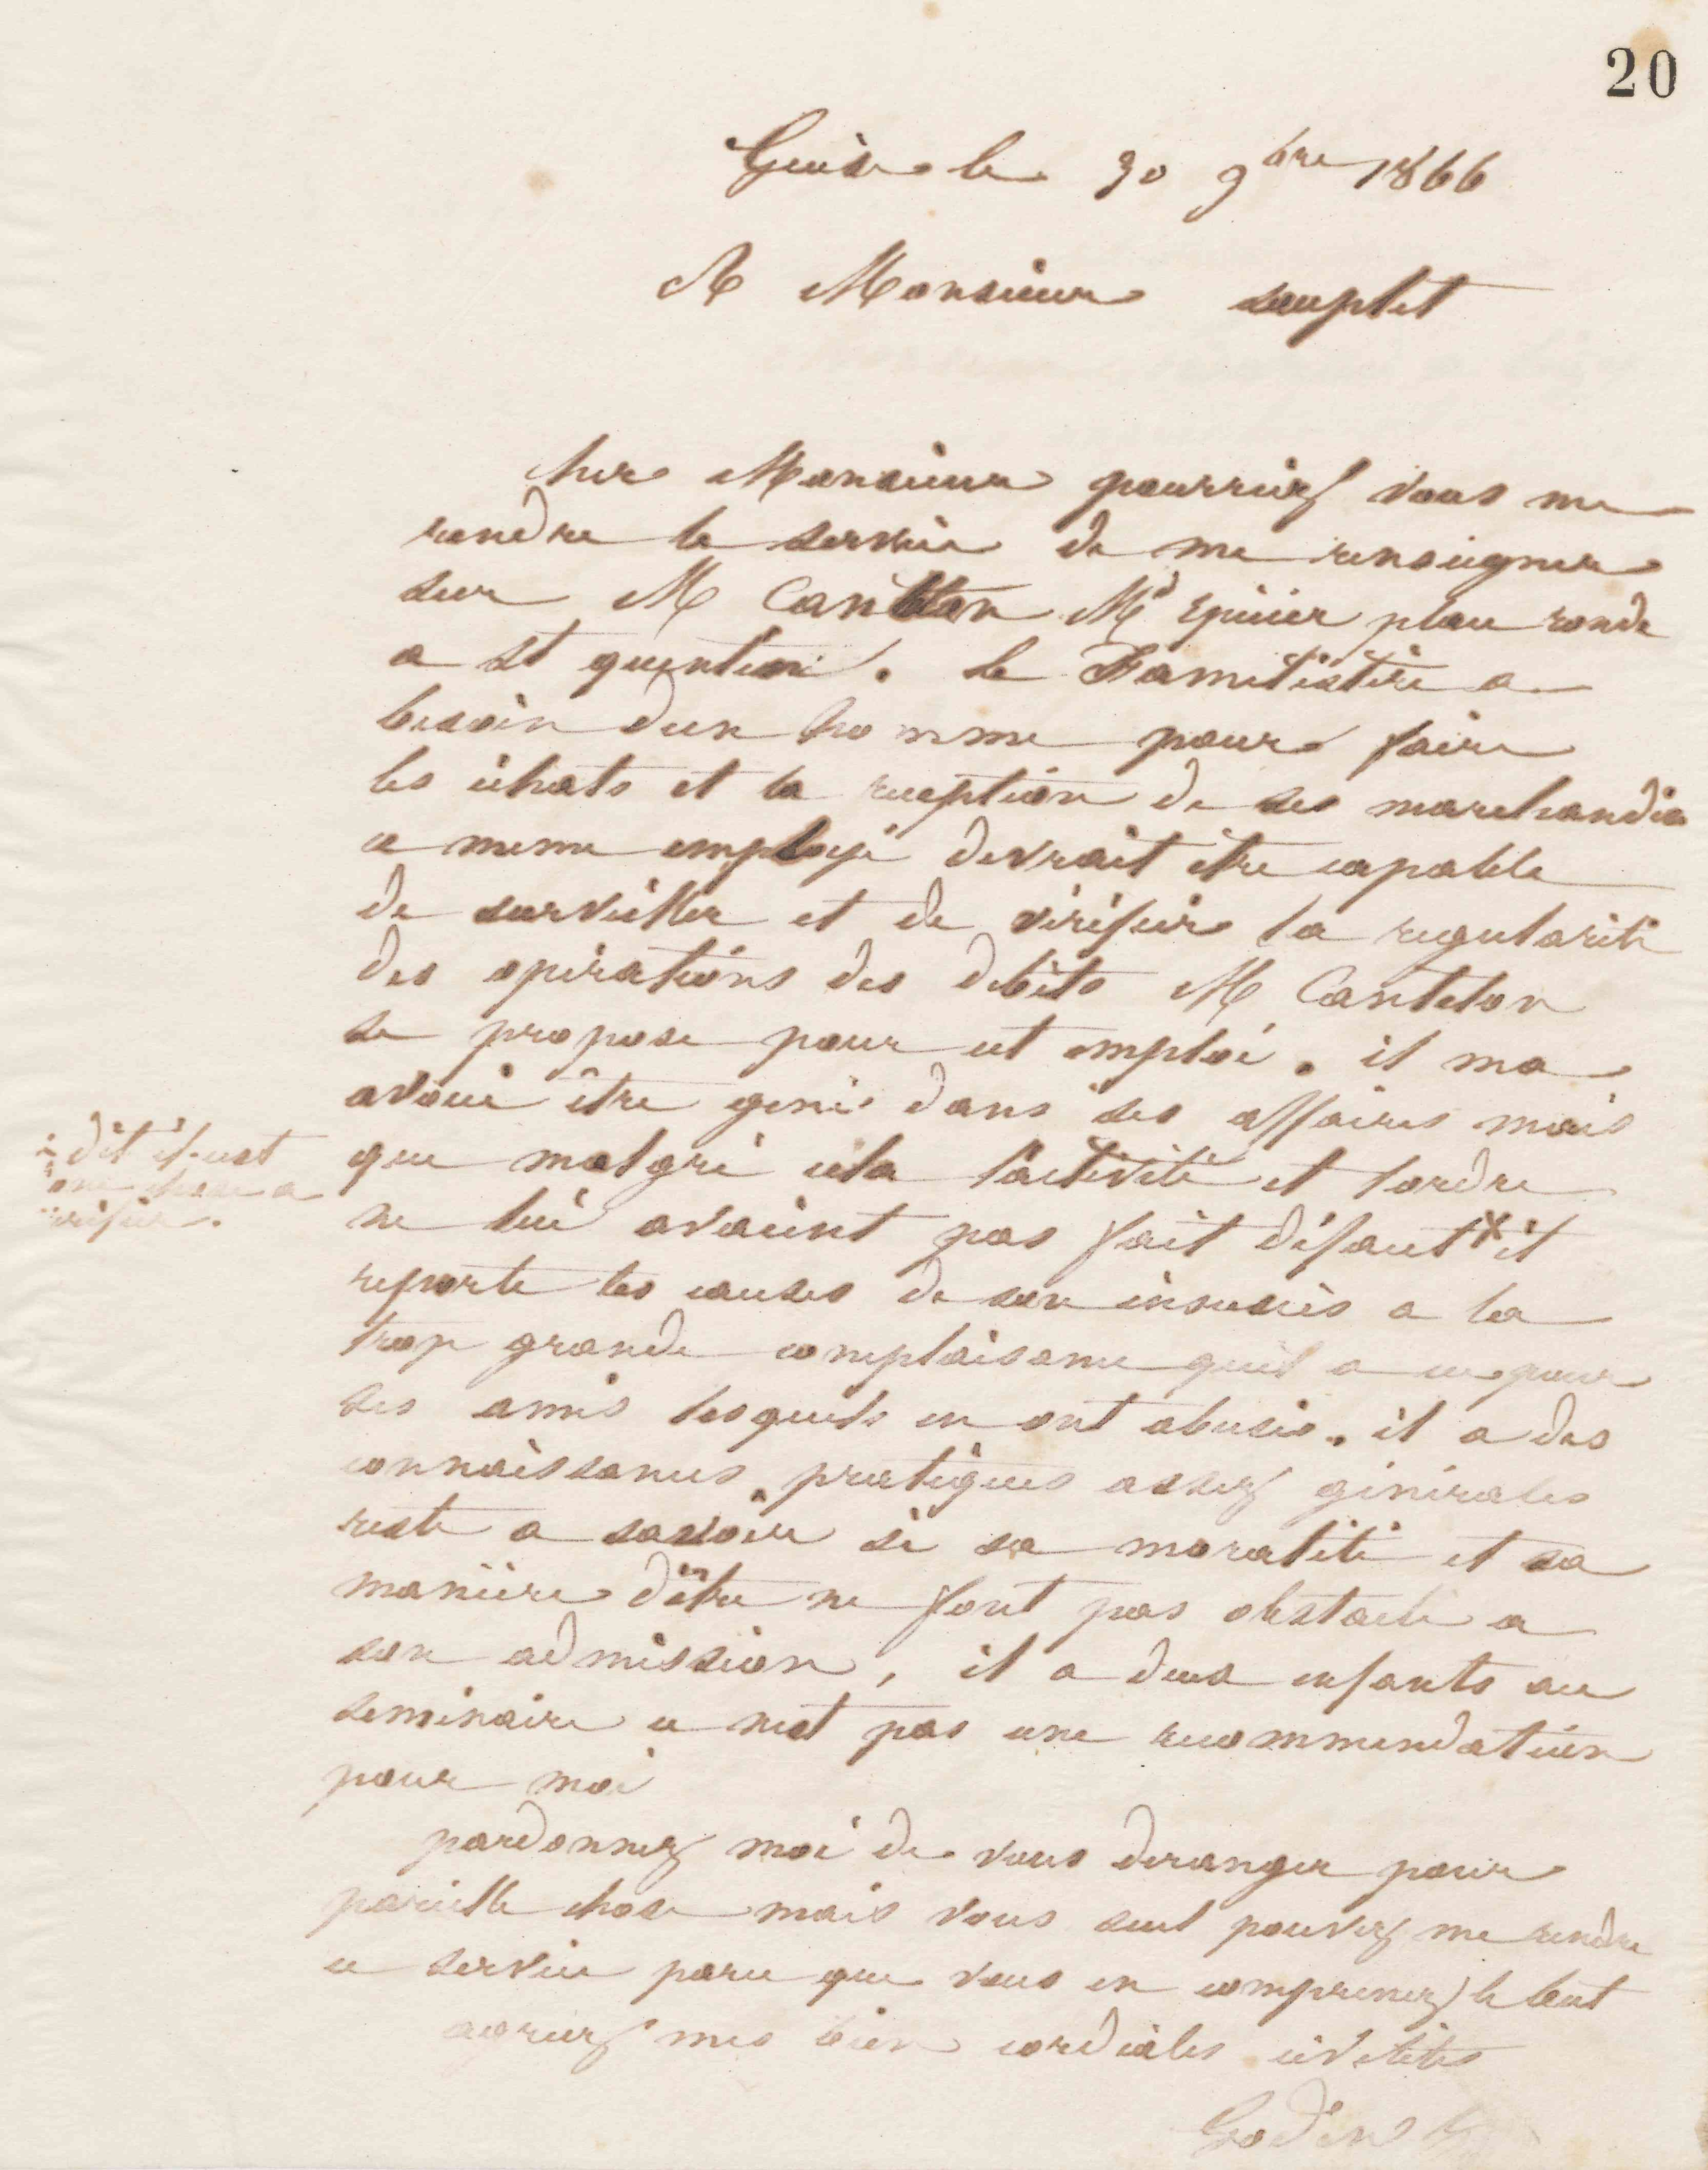 20
Guise le 30 9bre 1866
A Monsieur souplet
cher Monsieur pourriez vous me
rendre le service de me renseigner
sur M Cantelon Md Epicier place ronde
a St quentin. le Familistère a
besoin dun homme pour faire
les achats et la reception de ses marchandis
ce meme employé devrait être capable
de surveiller et de vérifier la regularité
des opérations des debits M Cantelon
se propose pour cet emploi. il ma
avoué être gené dans ses affaires mais
que malgré cela lactivité et lordre
ne lui avaient pas fait défaut x il
dit il cest
une chose a
vérifier.
reporte les causes de son insuccès a la
trop grande complaisance quil a eu pour
ses amis lesquels en ont abusés. il a des
connaissances pratiques assez générales
reste a savoir si sa moralité et sa
manière d'être ne font pas obstacle a
son admission, il a deux enfants au
seminaire ce nest pas une recommendation
pour moi
pardonnez moi de vous deranger pour
pareille chose mais vous seul pouvez me rendre
ce service parce que vous en comprenez le but
agreez mes bien cordiales civilités
Godin